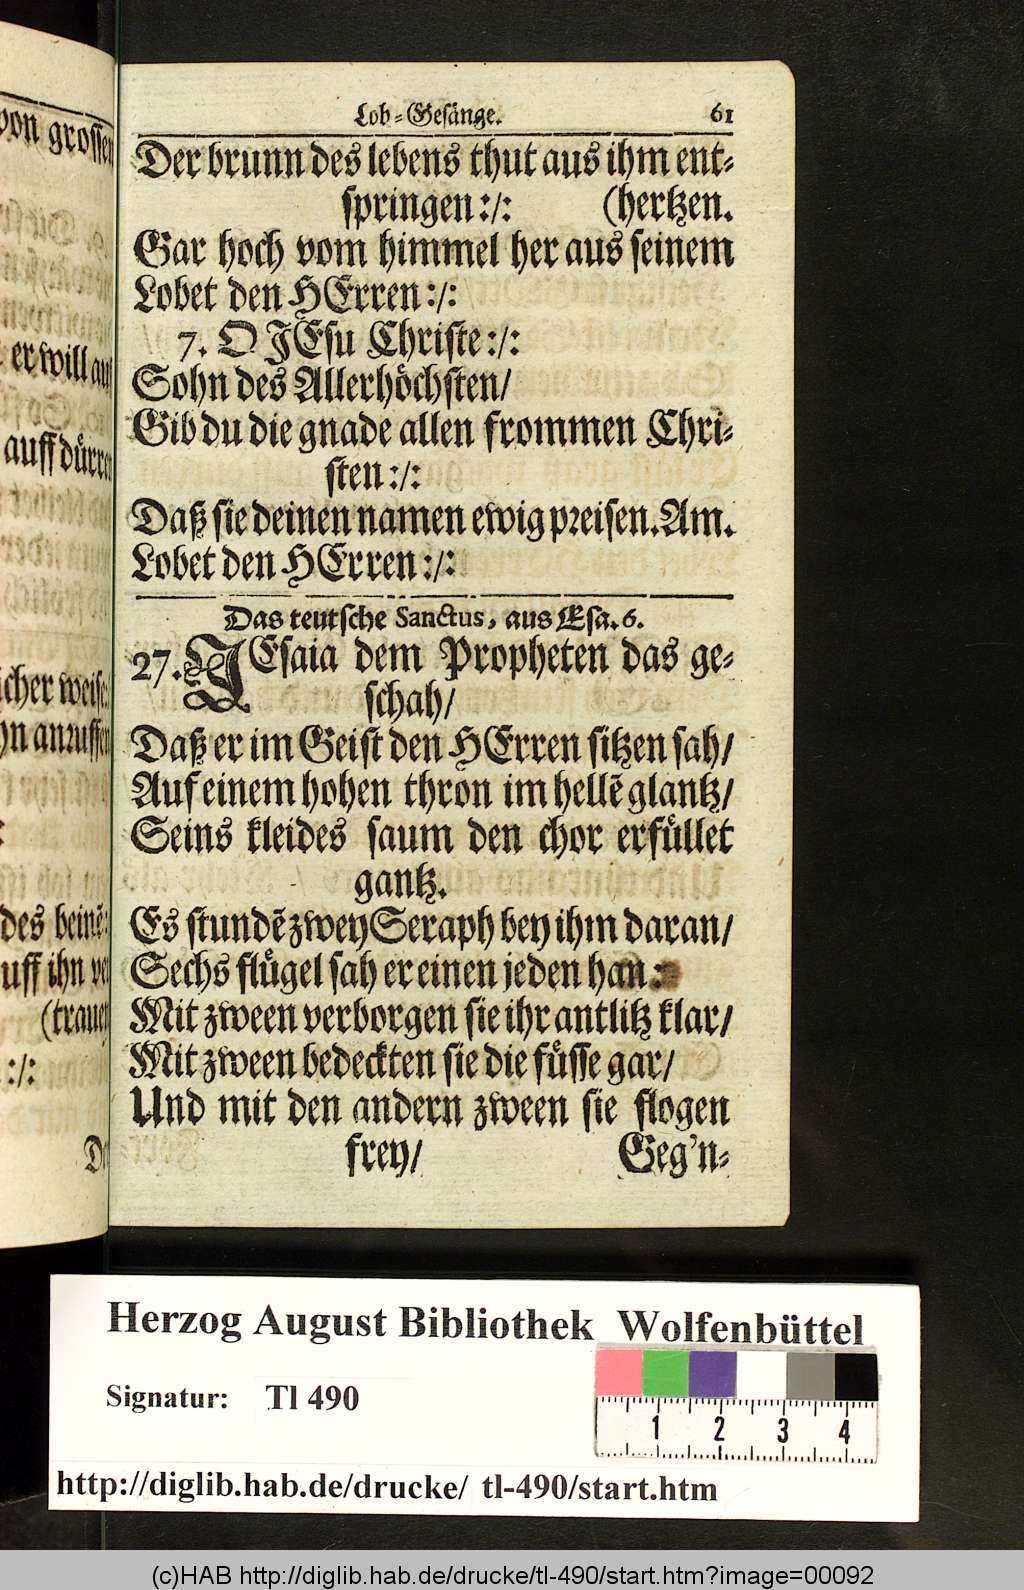 von grossen
er will auf
auff dürren
icher weise
hn anruffen
des beinē
uff ihn
(trauen
:/:
Lob-Gesänge. 61
Der brunn des lebens thut aus ihm ent-
springen:/: (hertzen.
Gar hoch vom himmel her aus seinem
Lobet den HErren:/:
7. O JEsu Christe:/:
Sohn des Allerhöchsten/
Gib du die gnade allen frommen Chri-
sten:/:
Daß sie deinen namen ewig preisen. Am.
Lobet den HErren:/:
Das teutsche Sanctus, aus Esa. 6.
27. JEsaia dem Propheten das ge-
schah/
Daß er im Geist den HErren sitzen sah/
Auf einem hohen thron im hellē glantz/
Seins kleides saum den chor erfüllet
gantz.
Es stundē zwey Seraph bey ihm daran/
Sechs flügel sah er einen jeden han:
Mit zween verborgen sie ihr antlitz klar/
Mit zween bedeckten sie die füsse gar/
Und mit den andern zween sie flogen
frey/ Geg'n-
Herzog August Bibliothek Wolfenbüttel
Signatur: Tl 490
1 2 3 4
http://diglib.hab.de/drucke/ tl-490/start.htm
(c)HAB http://diglib.hab.de/drucke/tl-490/start.htm?image=00092